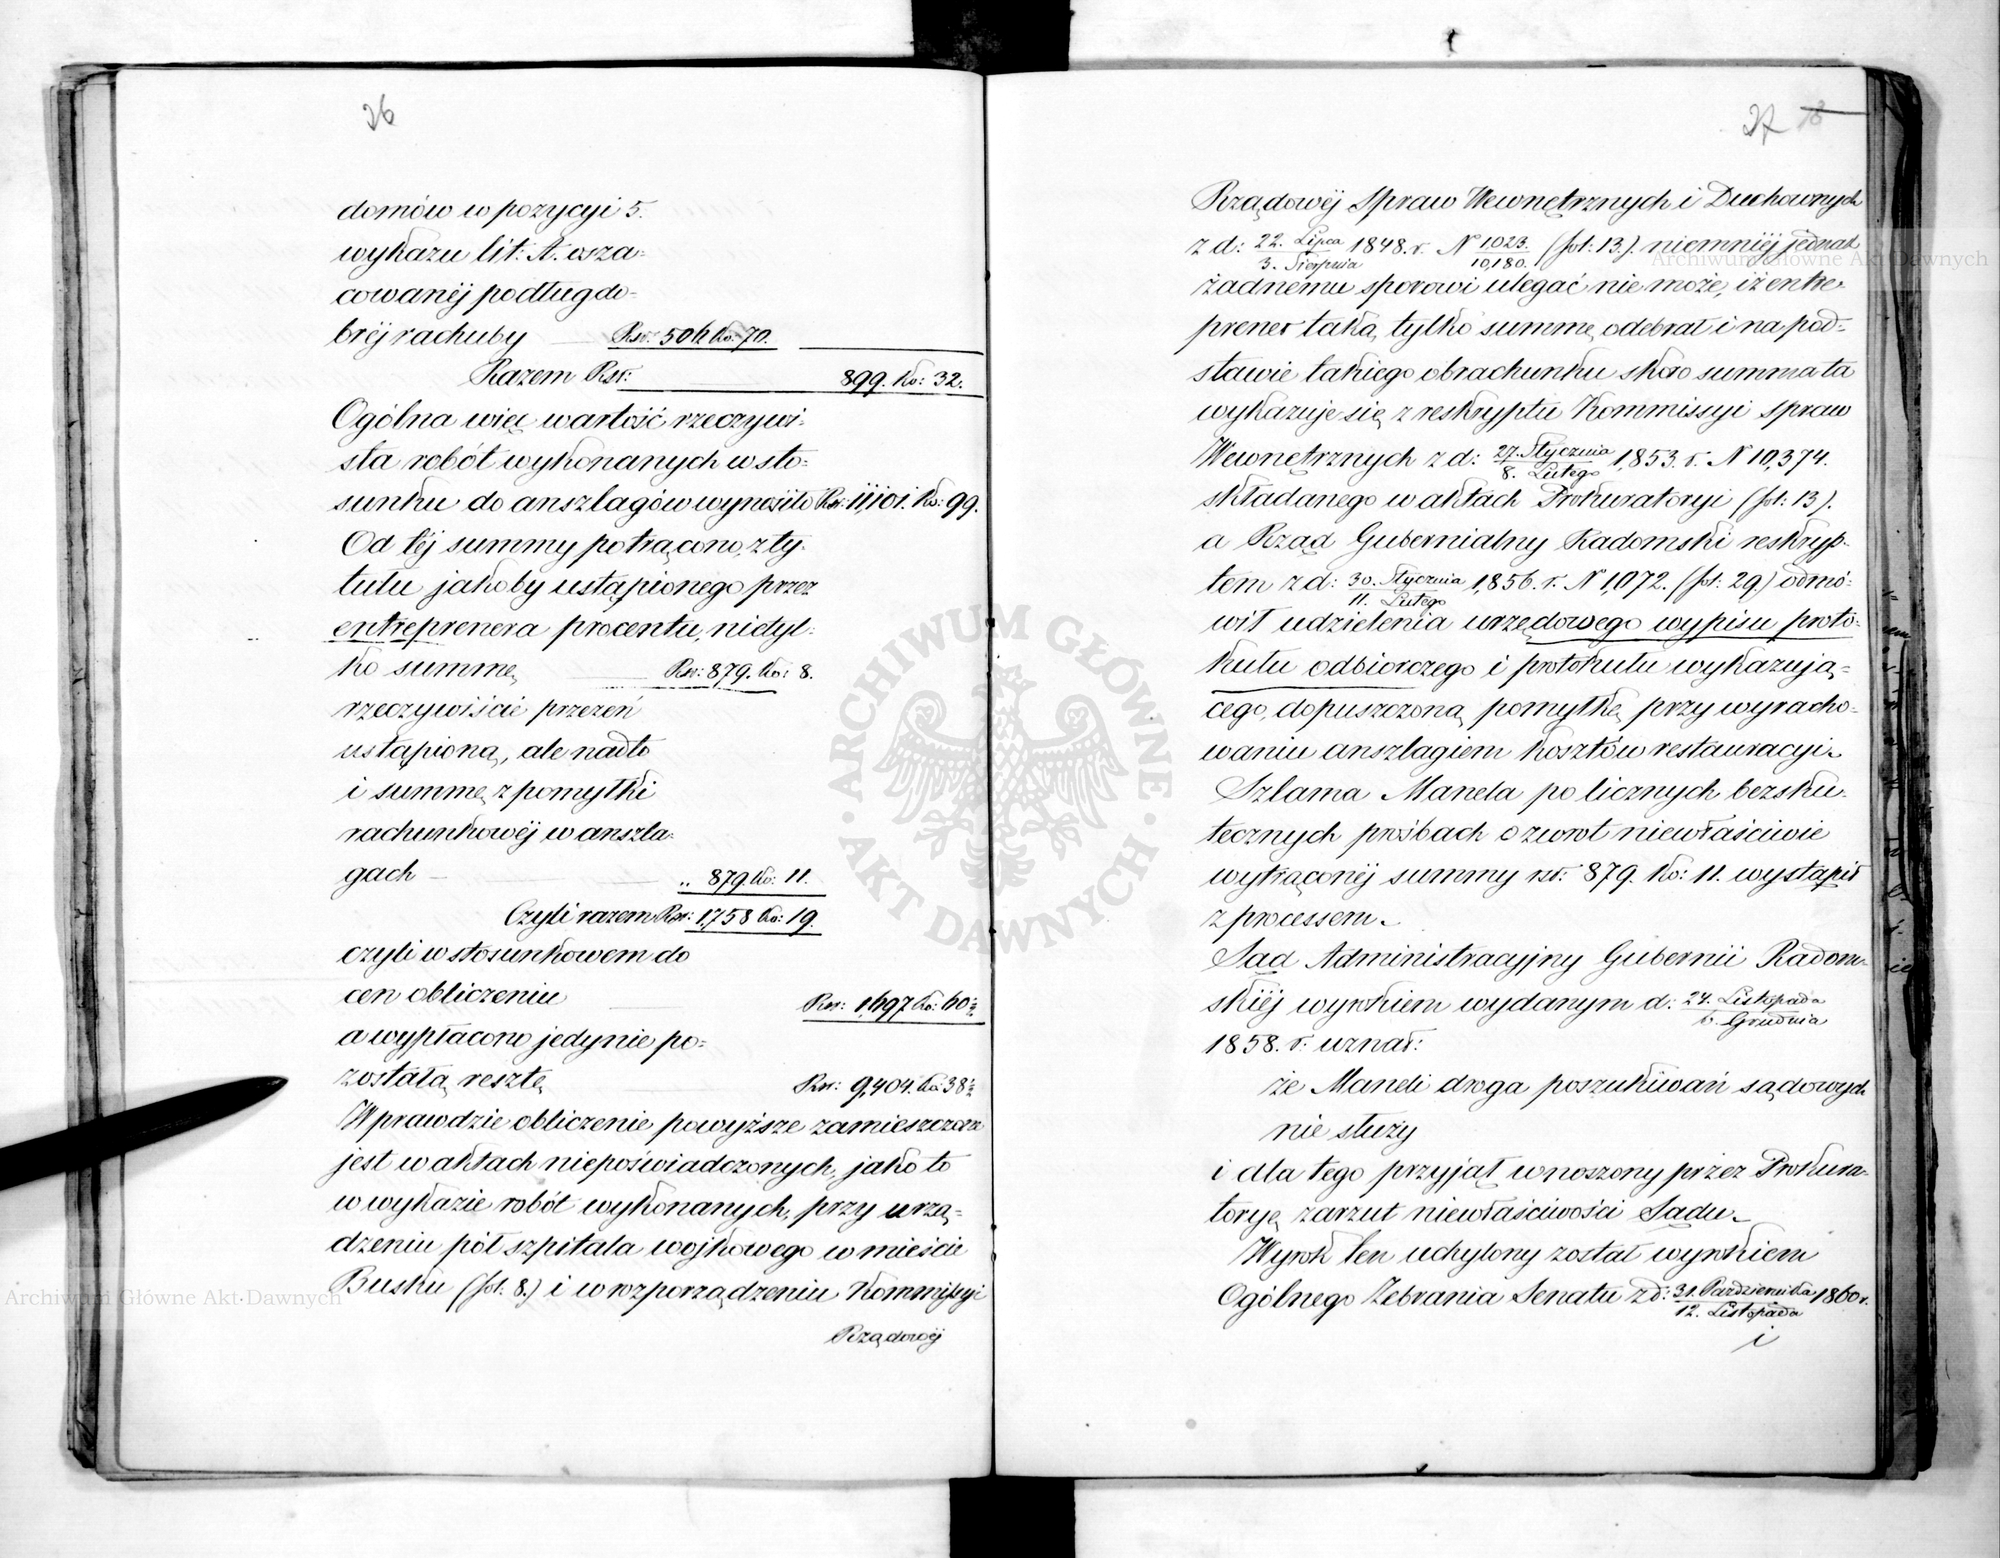 26
domów w pozycyi 5.
wykazu lit: A. osza-
cowanéj podług do-
bréj rachuby Rsr: 506 Ko: 70.
Razem Rsr: 899. Ko: 32.
Ogólna więc wartość rzeczywi-
sta robót wykonanych w sto-
sunku do anszlagów wynosiło Rsr: 11,101. Ko: 99.
Od téj summy potrącono, z ty-
tułu jakoby ustąpionego przez
entreprenera procentu, nietyl-
ko summę Rsr: 879. Ko: 8.
rzeczywiście przezeń
ustąpioną, ale nadto
i summę z pomyłki
rachunkowéj w anszla-
gach „ 879. Ko: 11.
Czyli razem Rsr: 1,758 Ko: 19.
czyli w stosunkowem do
cen obliczeniu Rsr: 1,697 Ko: 60
a wypłacono jedynie po-
zostałą resztę Rsr: 9,404. Ko: 38
Wprawdzie obliczenie powyższe zamieszczone
jest w aktach niepoświadczonych, jako to
w wykazie robót wykonanych, przy urzą-
dzeniu pół szpitala wojkowego w mieście
Busku (fol: 8.) i w rozporządzeniu Kommissyi
Rządowéj
27 18
Rządowéj Spraw Wewnętrznych i Duchownych
z d: 22. Lipca / 3. Sierpnia 1848. r. N 1023. / 10,180. (fol: 13.). niemniéj jednak
żadnemu sporowi ulegać nie może, iż entre-
prener taką, tylko summę, odebrał i na pod-
stawie takiego obrachunku skoro summa ta
wykazuje się z reskryptu Kommissyi Spraw
Wewnętrznych z d: 27. Stycznia / 8. Lutego 1,853. r. N 10,374.
składanego w aktach Prokuratoryi (fol: 13).
a Rząd Gubernialny Radomski reskryp-
tem z d: 30. Stycznia / 11. Lutego 1,856. r. N 1,072. (fol: 29.) odmó-
wił udzielenia urzędowego wypisu proto-
kułu odbiorczego i protokułu wykazują-
cego, dopuszczoną pomyłkę przy wyracho-
waniu anszlagiem kosztów restauracyi.
Szlama Manela po licznych bezsku-
tecznych prośbach o zwrot niewłaściwie
wytrąconéj summy rsr: 879. Ko: 11. wystąpił
z processem.
Sąd Administracyjny Gubernii Radom-
skiéj wyrokiem wydanym d: 24. Listopada / 6. Grudnia
1858. r: uznał:
że Maneli droga poszukiwań sądowych
nie służy
i dla tego przyjął wnoszony przez Prokura-
toryę zarzut niewłaściwości Sądu.
Wyrok ten uchylony został wyrokiem
Ogólnego Zebrania Senatu z d: 31. Października / 12. Listopada 1860 r.
i
ARCHIWUM GŁÓWNE AKT DAWNYCH
Archiwum Główne Akt Dawnych
Archiwum Główne Akt Dawnych